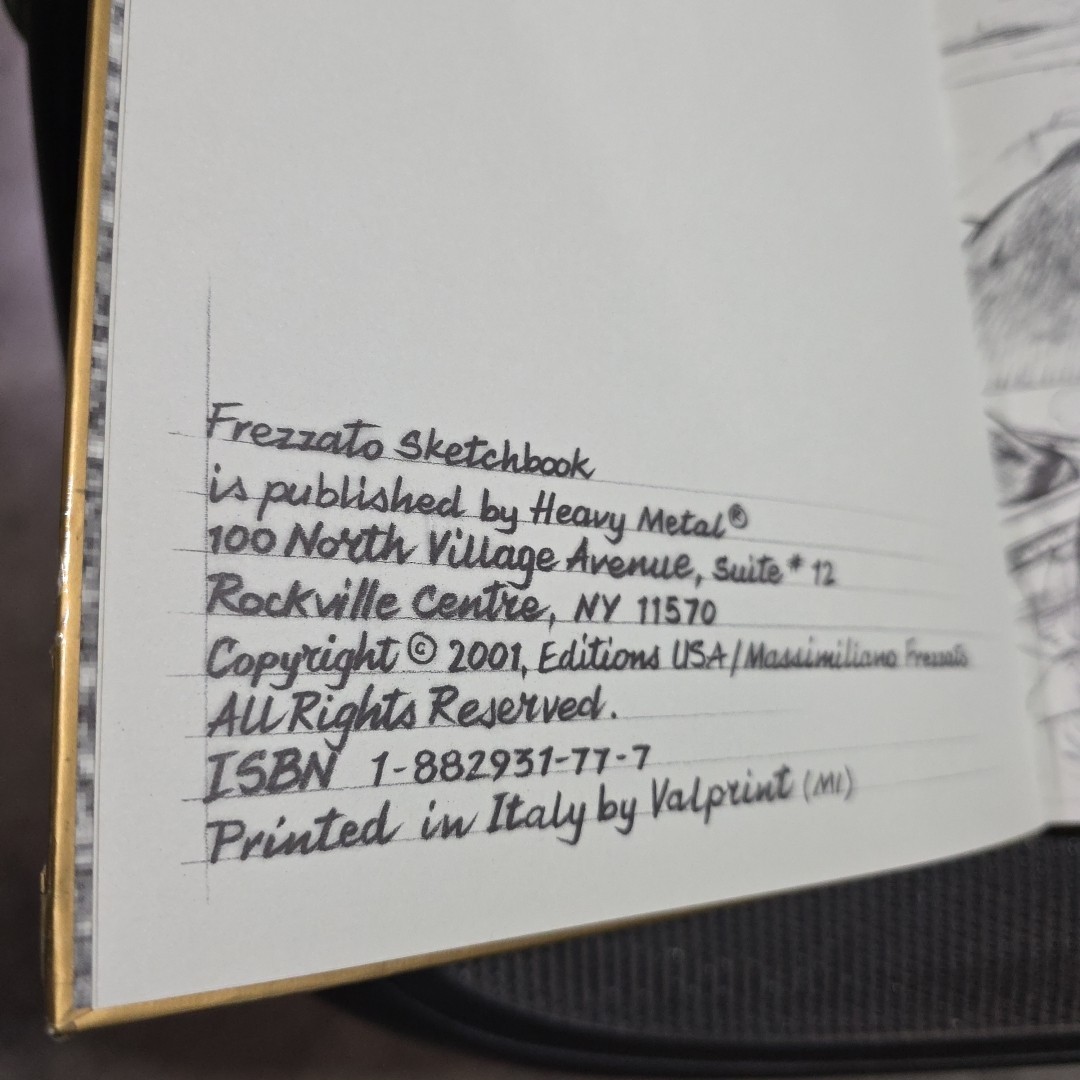 Frezzato Sketchbook
is published by Heavy Metal®
100 North Village Avenue, Suite # 12
Rockville Centre, NY 11570
Copyright © 2001, Editions USA/Massimiliano Frezzato
All Rights Reserved.
ISBN 1-882931-77-7
Printed in Italy by Valprint (MI)